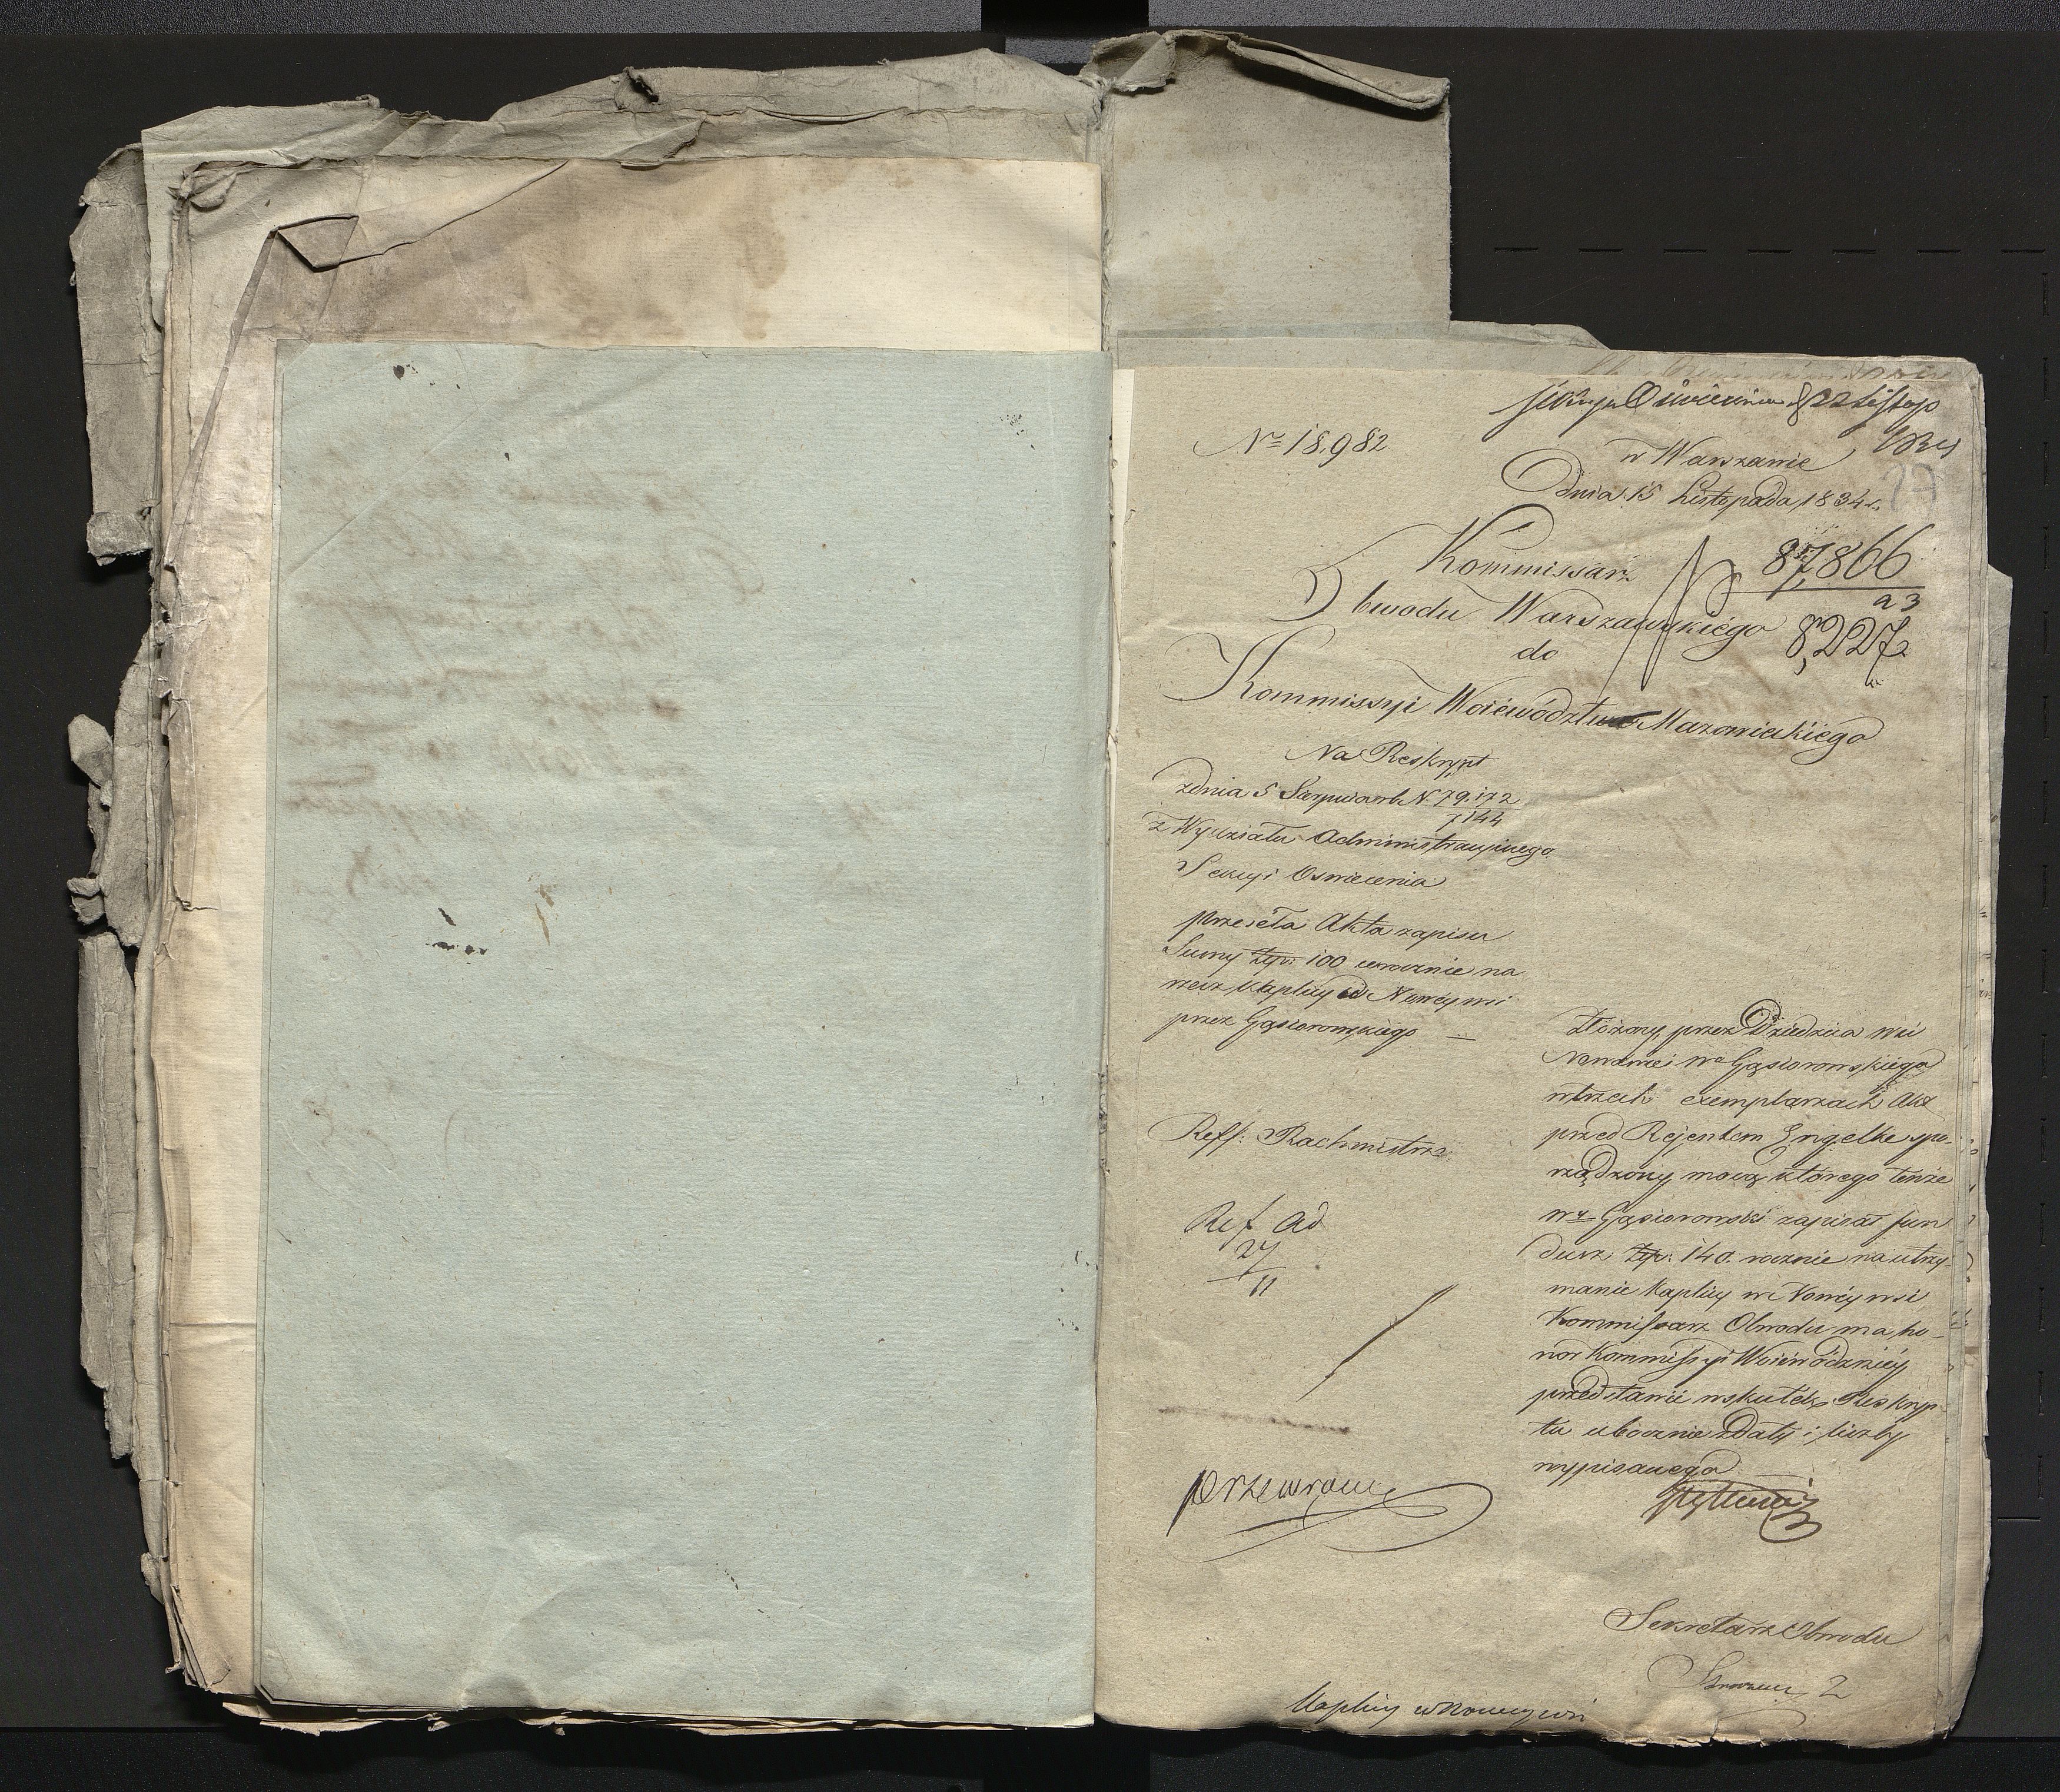 Sekcya Oświecenia d 22 Listop
1834
№ 18,982
w Warszawie
Dnia 15 Listopada 1834 r.
27
Kommissarz
Obwodu Warszawskiégo
do
Kommissyi Woiewództwa Mazowieckiégo
87866
a 3
8,227
Na Reskrypt
z dnia 5 Sierpnia r b N. 79.172
7144
z Wydziału Administracyinego
Sekcyi Oswiecenia
przeseła Akta zapisu
Sumy Złp: 100 corocznie na
rzecz kaplicy w Nowéy wsi
przez Gąsiorowskiego —
Reff: Rachmistrz
Ref ad
27
11
Złożony przez Dziedzica wsi
Nowéwsi Wo Gąsiorowskiego
w trzech exemplarzach Akt
przed Rejentem Engelke spo-
rządzony mocą którego tenże
Wy Gąsiorowski zapisał fun
dusz Złp: 140. rocznie na utrzy-
manie kaplicy w Nowéy wsi
Kommissarz Obwodu ma ho-
nor Kommissyi Woiewódzkiéy
przedstawić w skutek Reskryp-
tu ubocznie z daty i liczby
wypisanego
Sekretarz Obwodu
Kaplicy w Nowey wsi